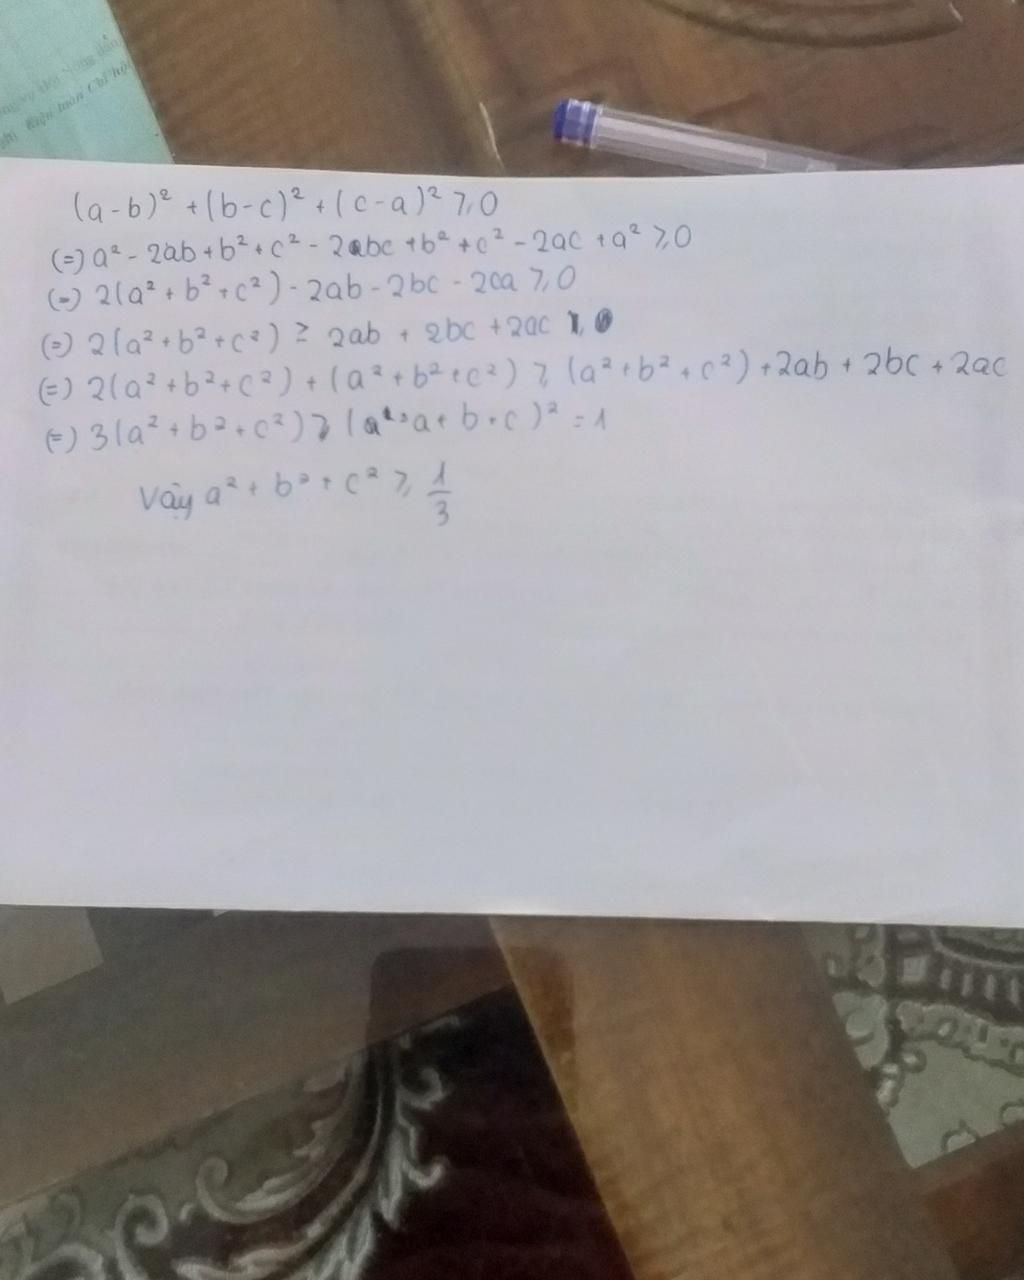 Kiện toàn Chi hội
(a-b)² + (b-c)² + (c-a)² ≥ 0
(=) a² - 2ab + b² + c² - 2bc + b² + c² - 2ac + a² ≥ 0
(=) 2(a² + b² + c²) - 2ab - 2bc - 2ca ≥ 0
(=) 2(a² + b² + c²) ≥ 2ab + 2bc + 2ac
(=) 2(a² + b² + c²) + (a² + b² + c²) ≥ (a² + b² + c²) + 2ab + 2bc + 2ac
(=) 3(a² + b² + c²) ≥ (a + b + c)² = 1
Vậy a² + b² + c² ≥ 1/3